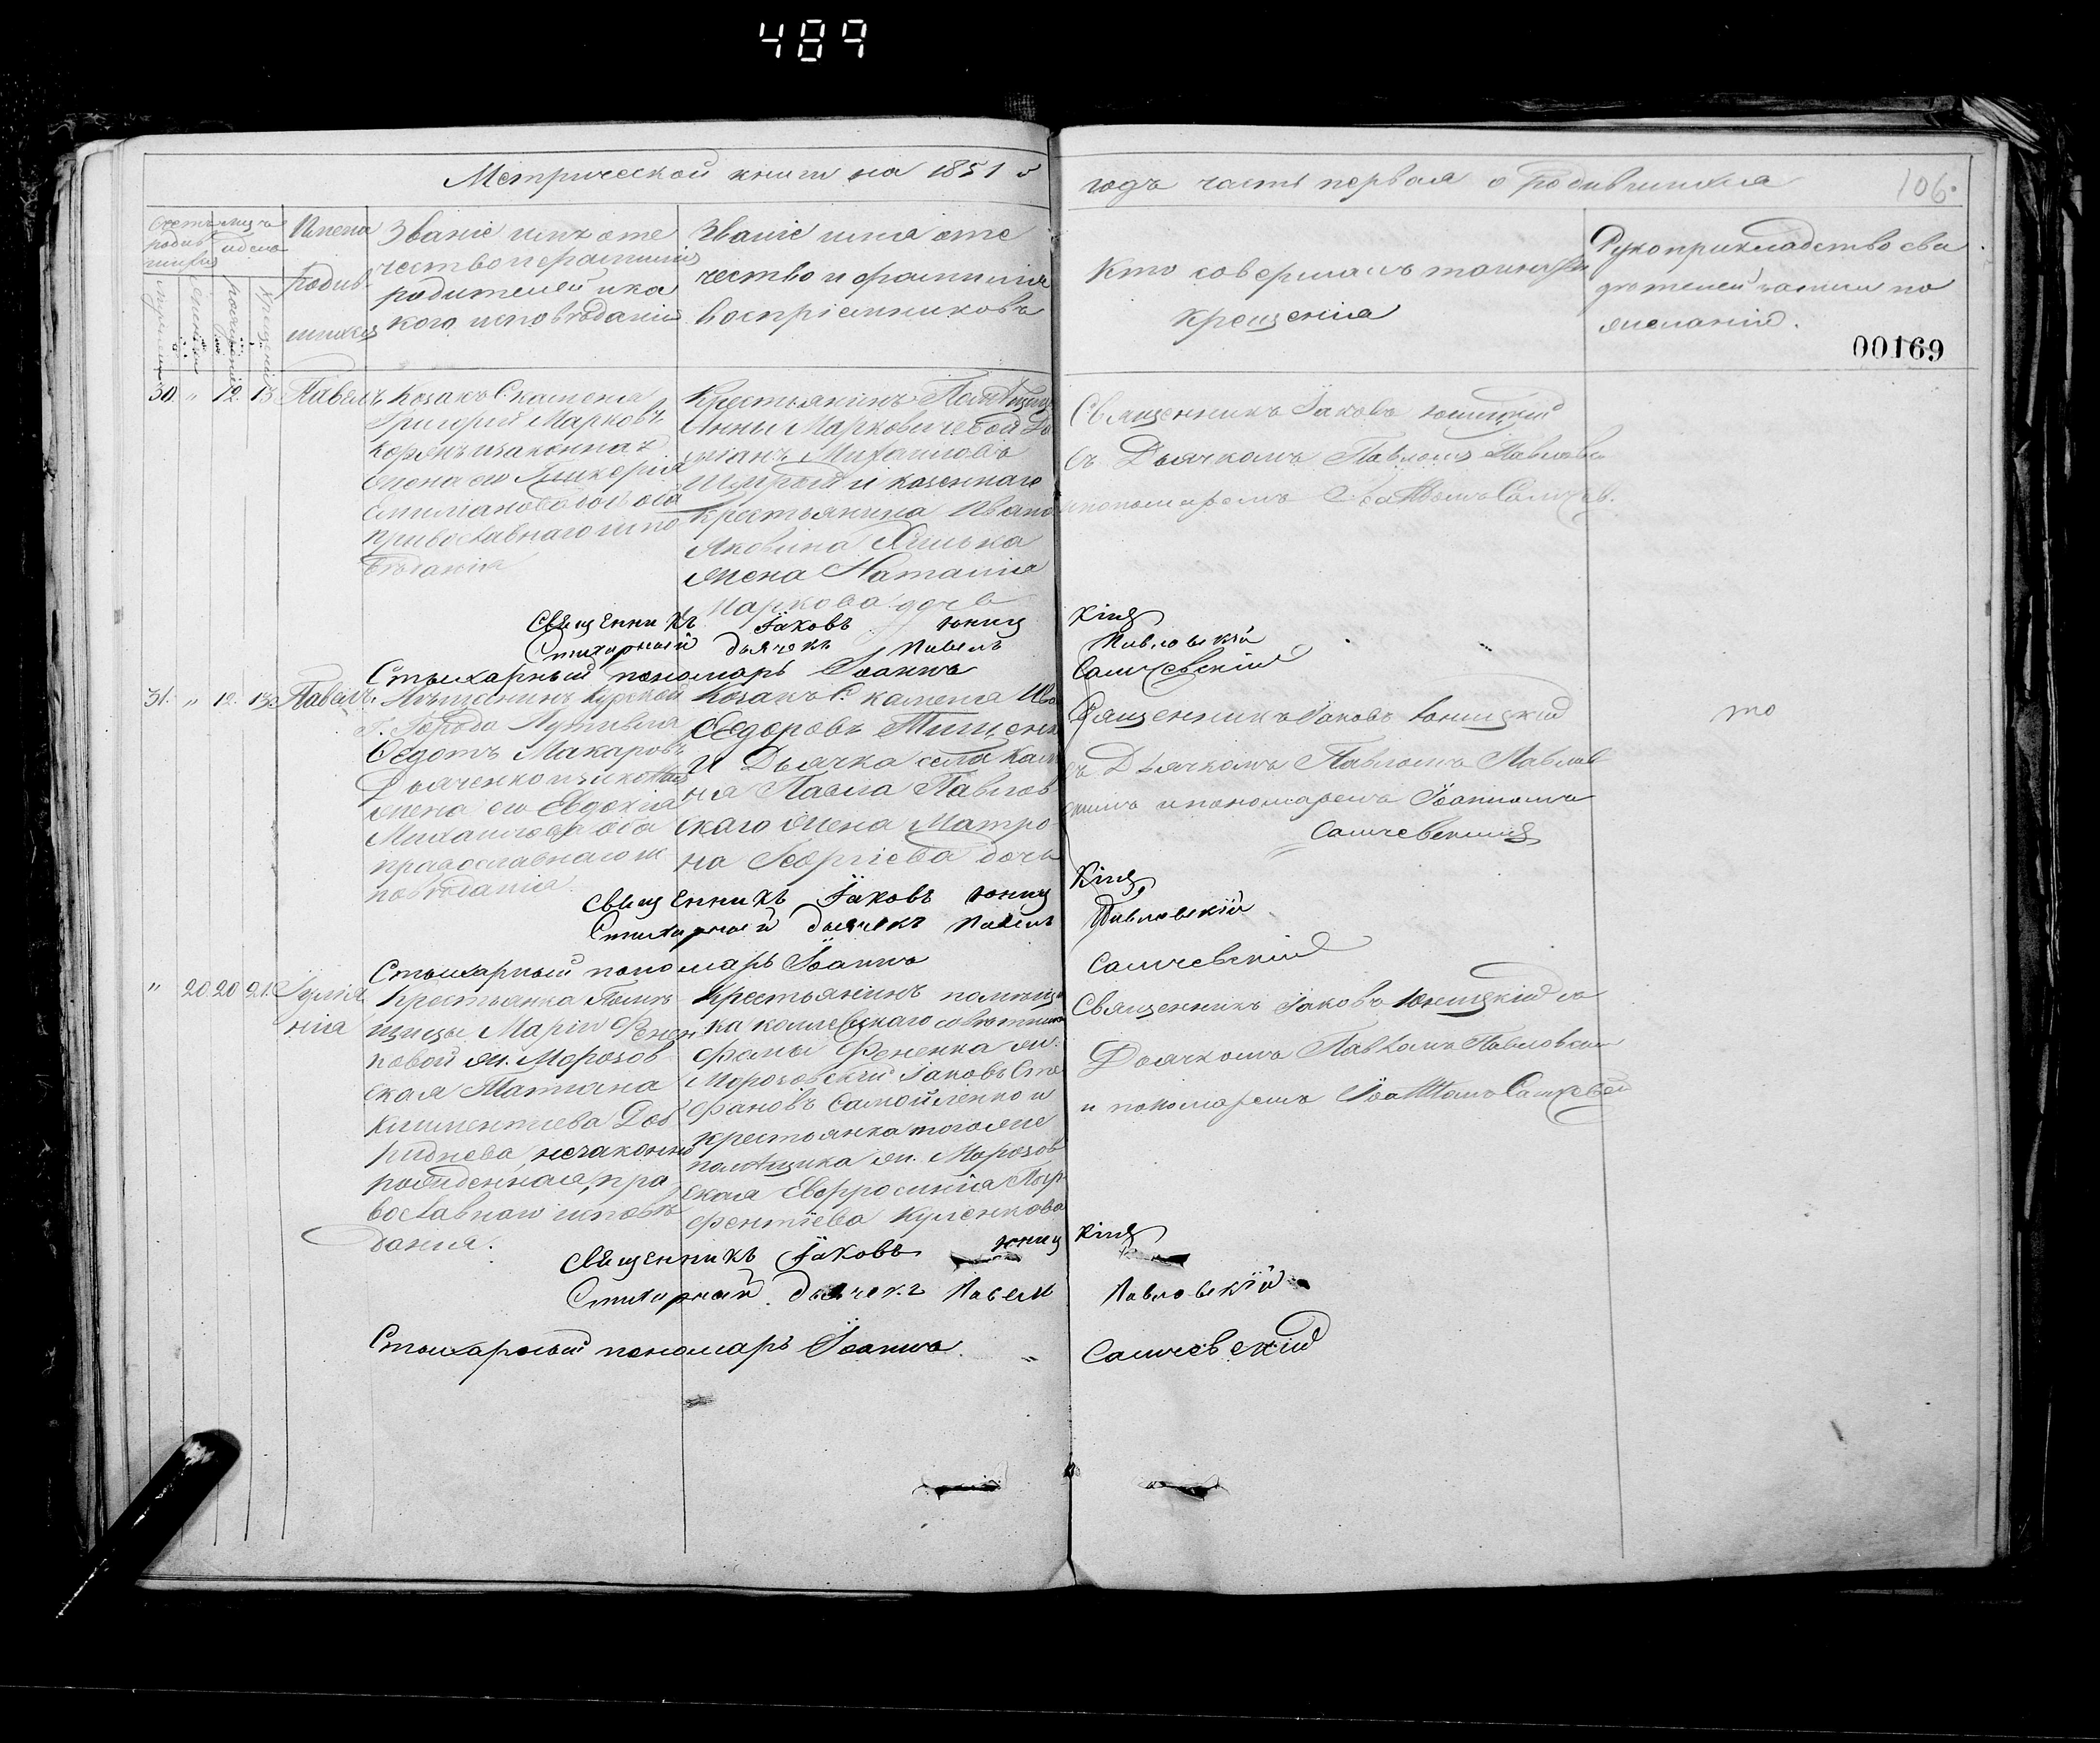 489
Метрической книги на 1851 й
годъ часть первая о родившихся
106.
Счетъ
родив
шихся
Имена
родив
шихся
Званіе имя оте
чество и фамилія
родителей и ка
кого исповѣданія
Званіе имя оте
чество и фамилія
воспріемниковъ
Кто совершалъ таинство
крещенія
Рукоприкладство сви
дѣтелей записи по
желанію.
00169
30. " 12. 13. Павелъ
Козакъ С. Каменя
Григорій Марковъ
Корень и законная
жена его Гликерія
Емиліанова оба
православнаго испо
вѣданія
Крестьянинъ
Анны Марковичевой
Михаиловъ
и козеннаго
крестьянина Ивана
Яковина
жена Наталія
Маркова дочь
Священникъ Іаковъ Юницкій
съ Дьячкомъ Павломъ Павловс
и пономаремъ Іоанномъ Самчев.
Священникъ Іаковъ Юниц кій
Стихарный дьячекъ Павелъ Павловскій
Стихарный пономарь Іоаннъ Самчевскій
31. " 12. 13. Павелъ
Мѣщанинъ Курской
г. Города Путивля
Ѳедотъ Макаровъ
Дьяченко и законная
жена его Евдокія
Михаилова оба
православнаго ис
повѣданія
Козакъ С. Каменя Ива
Ѳедоровъ Тищенк
и Дьячка села Каме
ня Павла Павлов
скаго жена Матро
на Георгіева дочь
Священникъ Іаковъ Юницкій
съ Дьячкомъ Павломъ Павлов
скимъ и пономаремъ Іоанномъ
Самчевскимъ
Священникъ Іаковъ Юниц кій
Стихарный дьячекъ Павелъ Павловскій
Стихарный пономарь Іоаннъ Самчевскій
" 20. 20 21. Іуліа
нія
Крестьянка Помѣ
щицы Маріи Фенен
ковой ж. Морозов
ская Татіана
Климентіева Доб
риднева, незаконно
рожденная, пра
вославнаго исповѣ
данія.
Крестьянинъ помѣщи
ка коллежскаго совѣтника
Фомы Фененка ж.
Морозовскій Іаковъ Сте
фановъ Самойленко и
крестьянка тогоже
помѣщика ж. Морозов
ская Евфросинія Пар
фентіева Куленкова
Священникъ Іаковъ Юницкій съ
Дьячкомъ Павломъ Павловским
и пономаремъ Іоанномъ Самчевски
Священникъ Іаковъ Юниц кій
Стихарный дьячекъ Павелъ Павловскій
Стихарный пономарь Іоаннъ Самчевскій